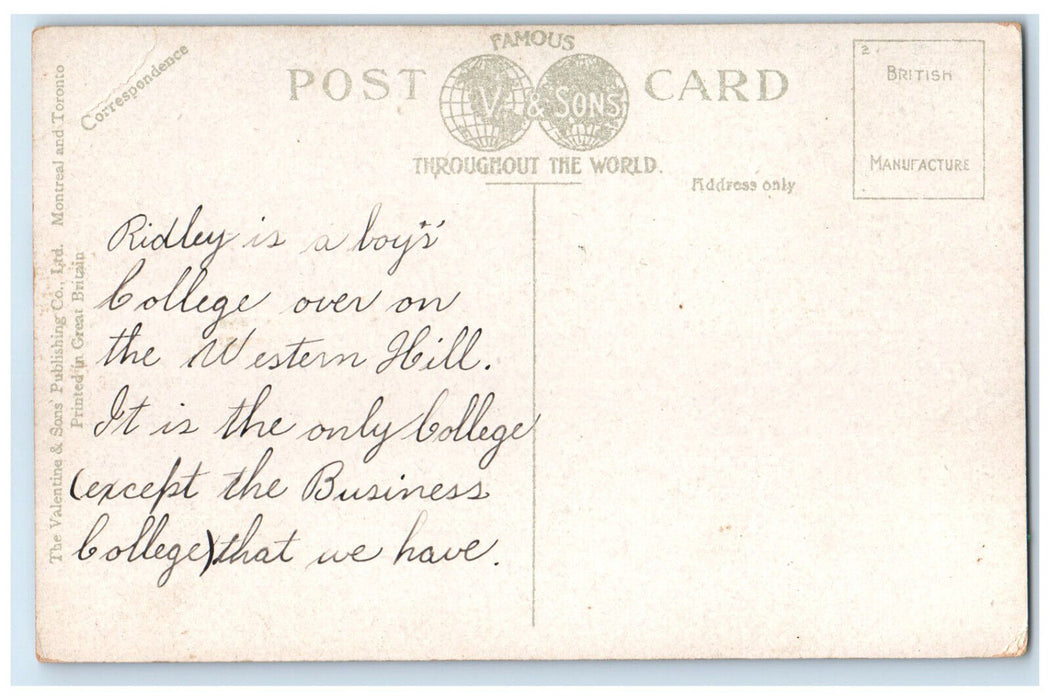 FAMOUS
POST CARD
V. & SONS
THROUGHOUT THE WORLD.
Correspondence
Address only
2
BRITISH
MANUFACTURE
The Valentine & Sons' Publishing Co., Ltd. Montreal and Toronto
Printed in Great Britain
Ridley is a boy's'
College over on
the Western Hill.
It is the only College
(except the Business
College) that we have.